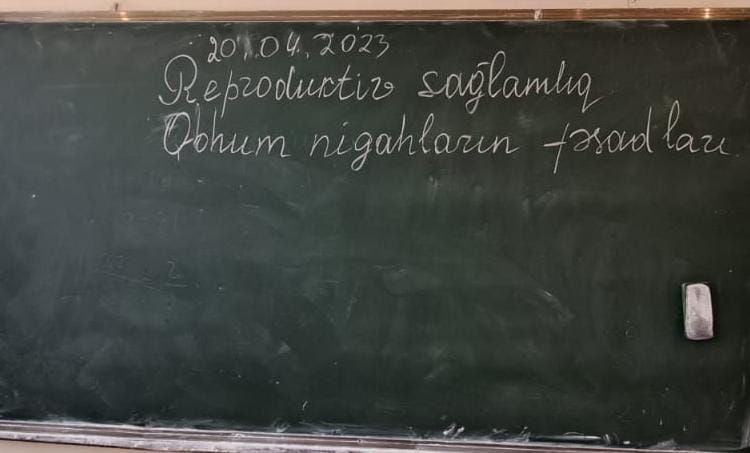 20.04.2023
Reproduktiv sağlamlıq
Qohum nigahların fəsadları